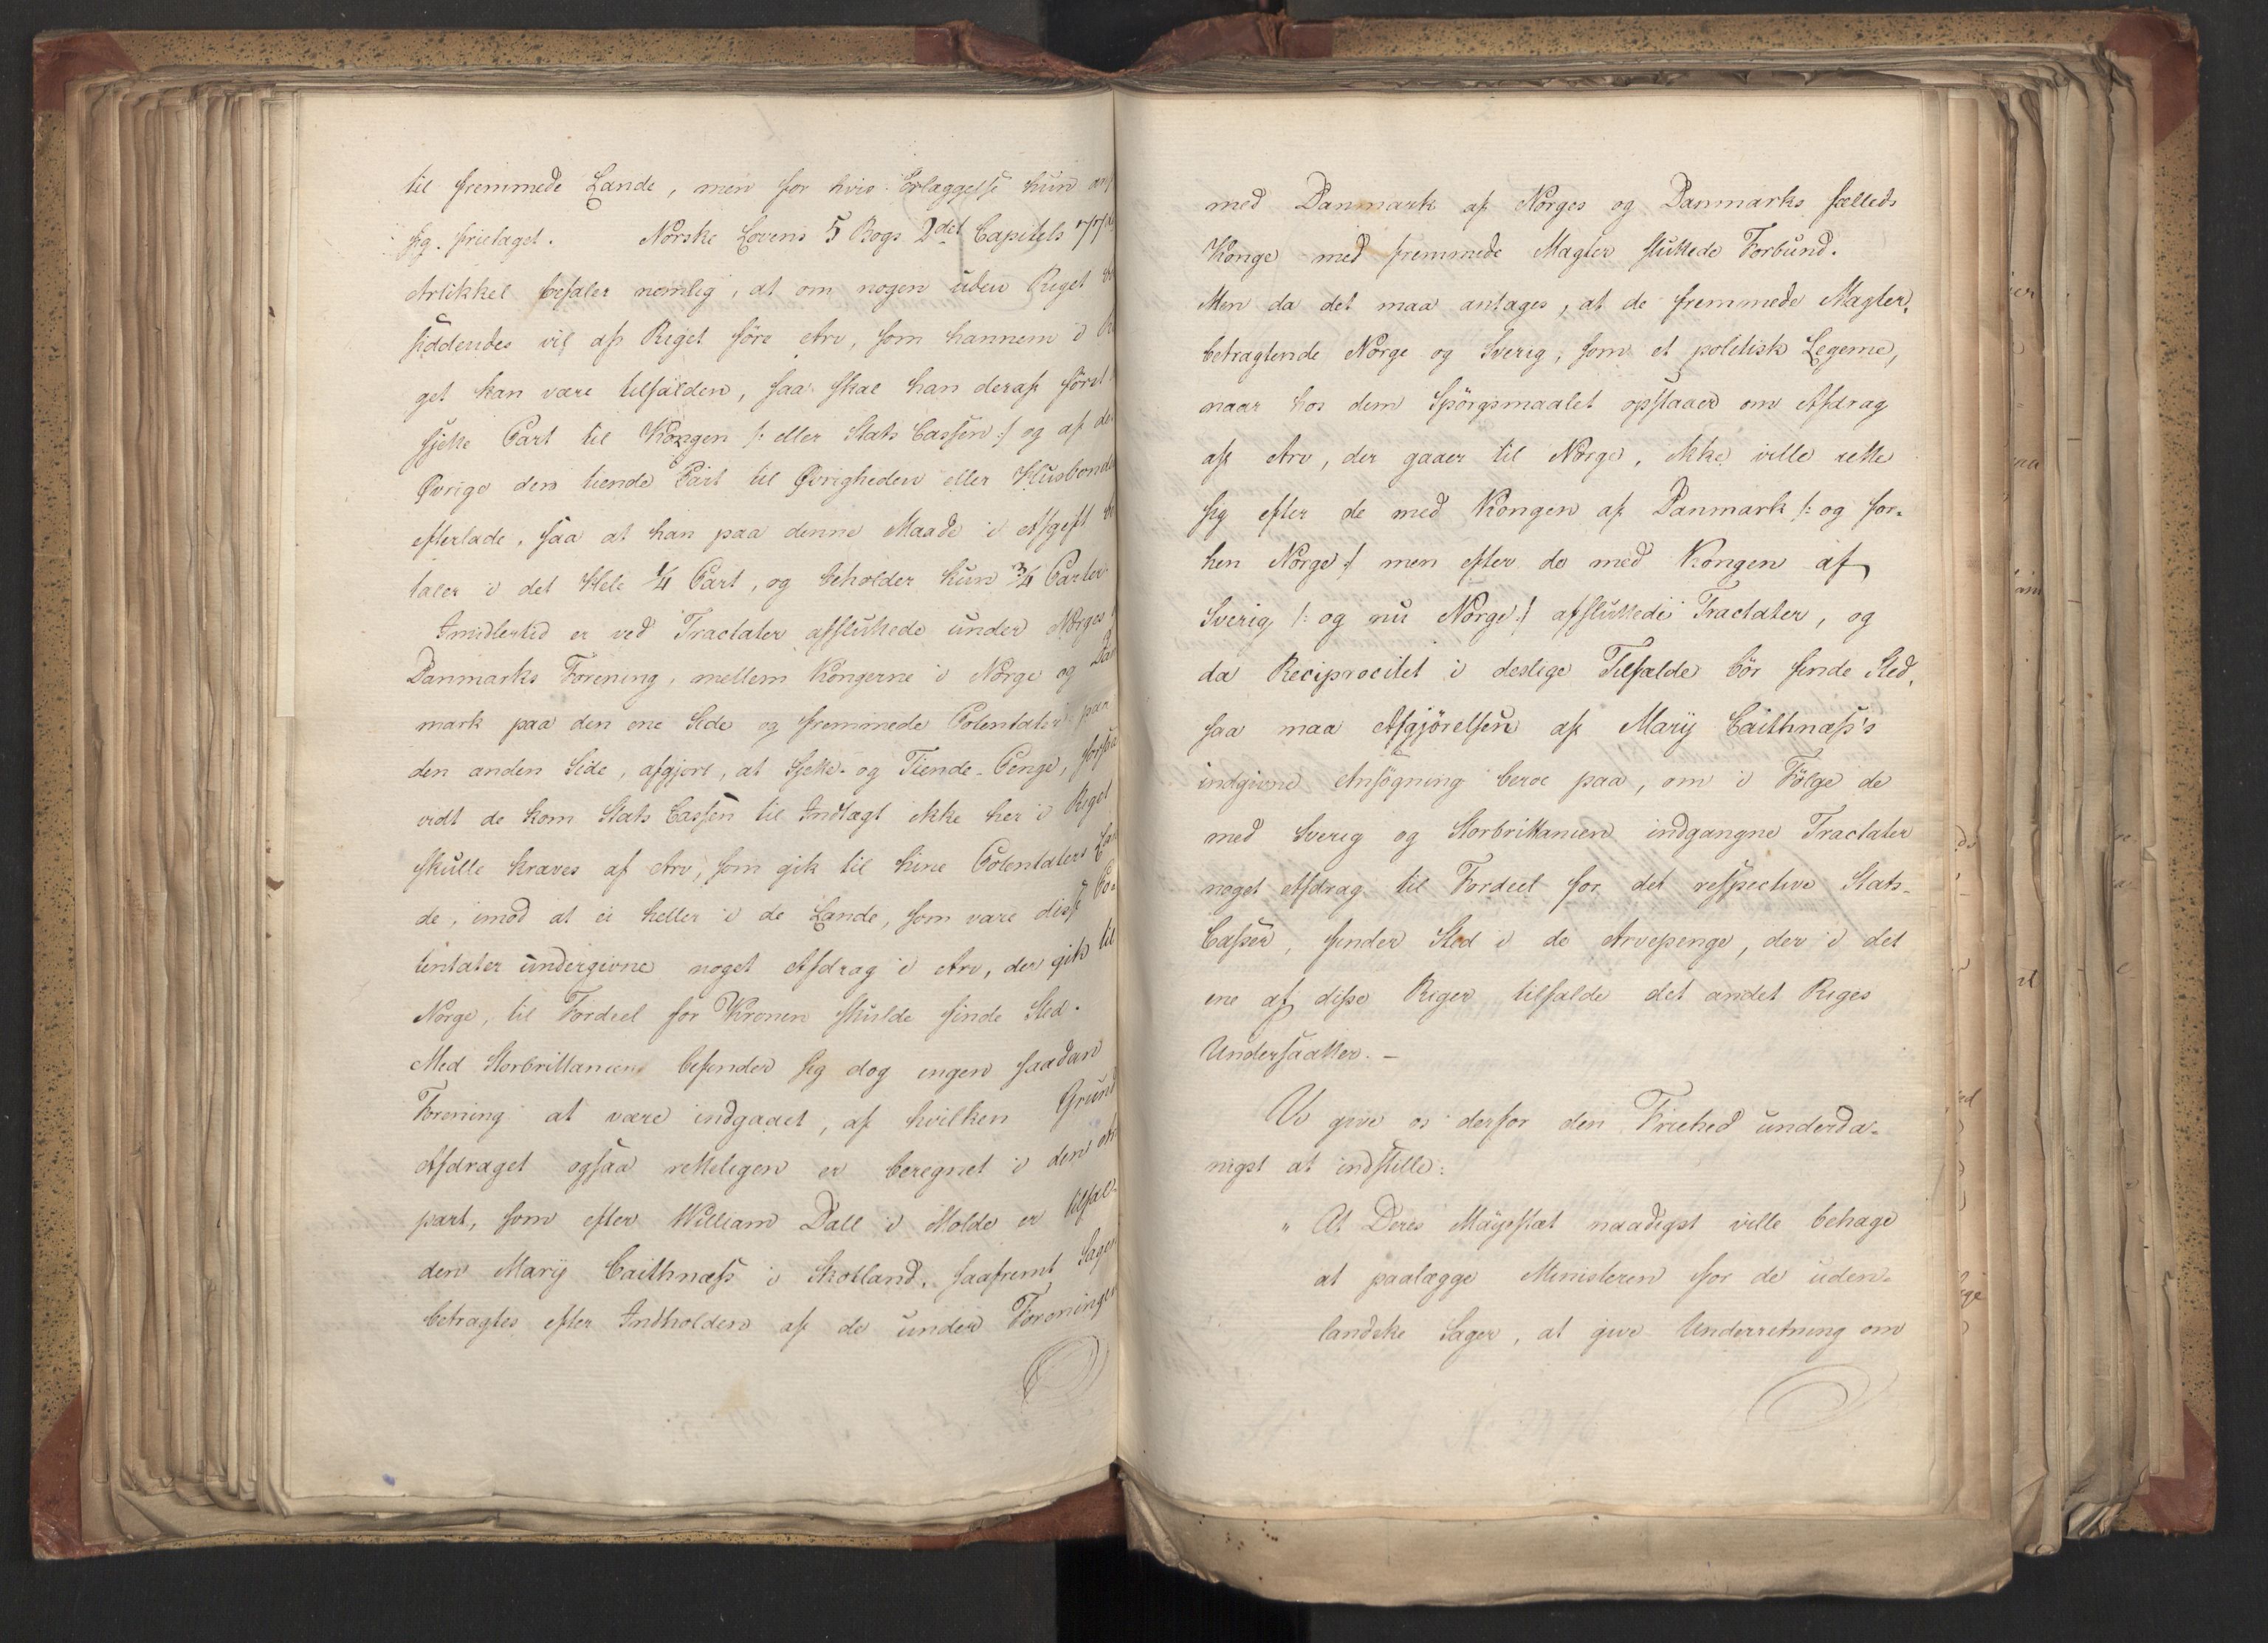 til fremmede Lande, men for hvis Erlæggelse hun
sig fritaget. Norske Lovens 5 Bogs 2det Capitels
Artikkel befaler nemlig, at om nogen uden Riget
siddendes vil af Riget före Arv, som hannem i
get kan være tilfalden, saa skal han deraf först
sjette Part til Kongen /: eller Stats Cassen :/ og af det
Øvrige den tiende Part til Øvrigheden eller Husbonde
efterlade, saa at han paa denne Maade i Afgift
taler i det Hele 1/4 Part, og beholder kun 3/4 Parter
Imidlertid er ved Tractater afsluttede under Norges
Danmarks Forening, mellem Kongerne i Norge og Dan
mark paa den ene Side og fremmede Potentater paa
den anden Side, afgjort, at Sjette- og Tiende-Penge, forsaa
vidt de kom Stats Cassen til Indtægt ikke her i Riget
skulle kræves af Arv, som gik til hine Potentaters Lan
de, imod at ei heller i de Lande, som vare disse Po-
tentater undergivne noget Afdrag i Arv, der gik til
Norge, til Fordeel for Kronen skulde finde Sted.
Med Storbrittanien befinder sig dog ingen saadan
Forening at være indgaaet, af hvilken Grund
Afdraget ogsaa retteligen er beregnet i den
part, som efter William Dall i Molde er tilfal-
den Mary Caithness i Skotland, saafremt Sagen
betragtes efter Indholden af de under Foreningen
med Danmark af Norges og Danmarks fælleds
Konge med fremmede Magter sluttede Forbund.
Men da det maa antages, at de fremmede Magter,
betragtende Norge og Sverig, som et politisk Legeme,
naar hos dem Spörgsmaalet opstaaer om Afdrag
af Arv, der gaaer til Norge, ikke ville rette
sig efter de med Kongen af Danmark /: og for-
hen Norge :/ men efter de med Kongen af
Sverig /: og nu Norge :/ afsluttede Tractater, og
da Reciprocitet i deslige Tilfælde bör finde Sted,
saa maa Afgjörelsen af Mary Caithness's
indgivne Ansögning beroe paa, om i Fölge de
med Sverig og Storbrittanien indgangne Tractater
noget Afdrag til Fordeel for det respective Stats-
Casser, finder Sted i de Arvepenge, der i det
ene af disse Riger tilfalde det andet Riges
Undersaatter. —
Vi give os derfor den Friehed underda-
nigst at indstille:
" At Deres Majestæt naadigst ville behage
at paalægge Ministeren for de uden-
landske Sager, at give Underretning om